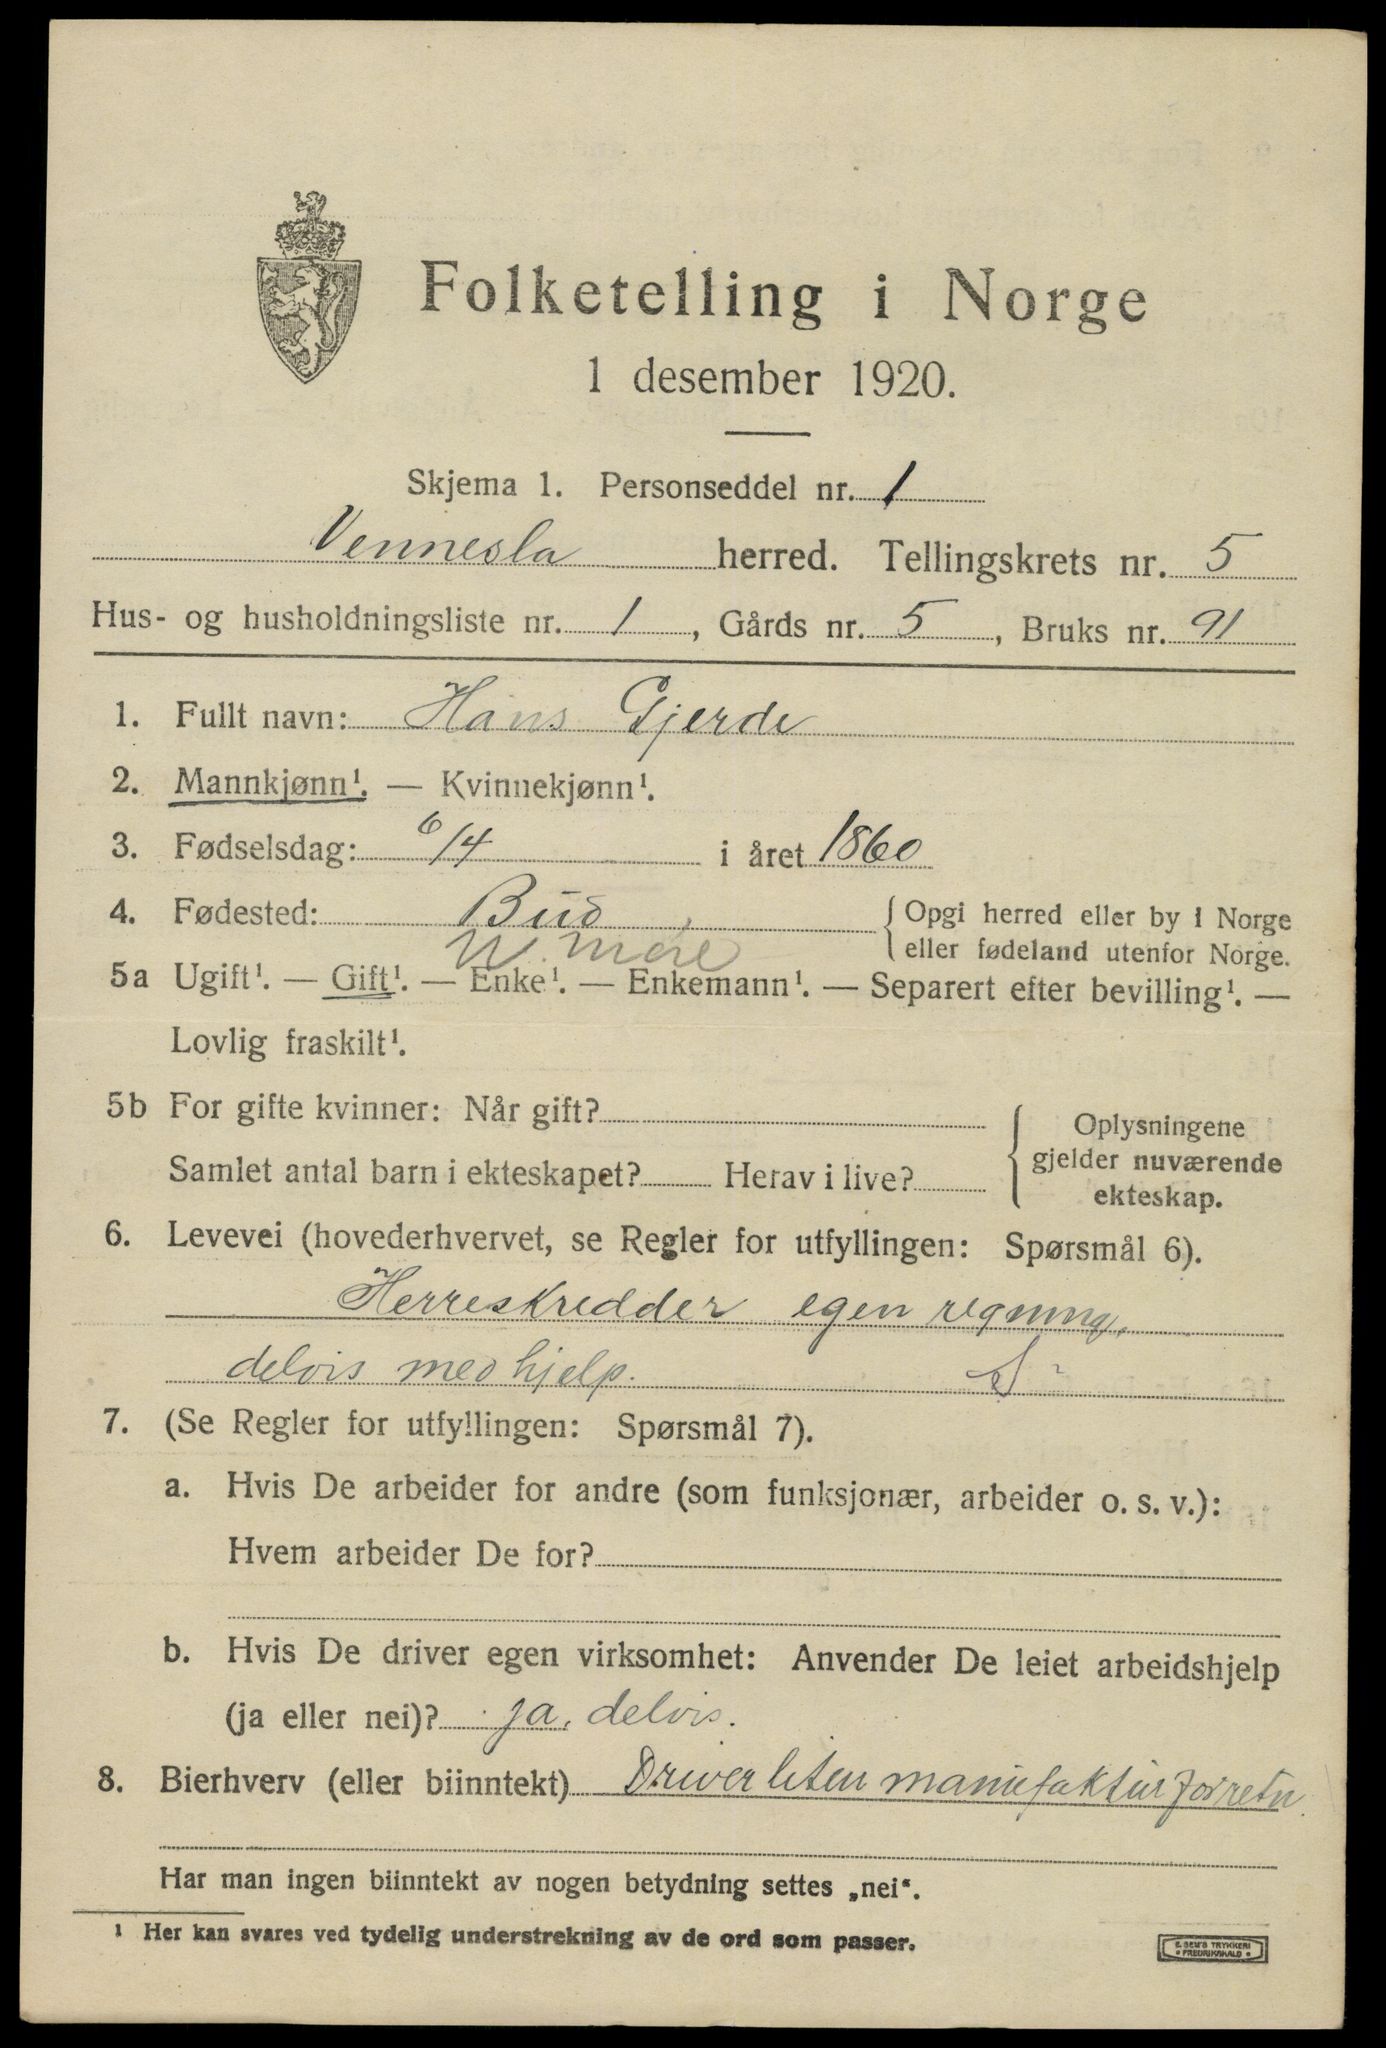 Folketelling i Norge
1 desember 1920.
Skjema 1. Personseddel nr. 1
Vennesla herred. Tellingskrets nr. 5
Hus- og husholdningsliste nr. 1, Gårds nr. 5, Bruks nr. 91
1. Fullt navn: Hans Gjerde
2. Mannkjønn¹. — Kvinnekjønn¹.
3. Fødselsdag: 6/4 i året 1860
4. Fødested: Bud, { Opgi herred eller by i Norge
N. Møre eller fødeland utenfor Norge.
5a Ugift¹. — Gift¹. — Enke¹. — Enkemann¹. — Separert efter bevilling¹. —
Lovlig fraskilt¹.
5b For gifte kvinner: Når gift? { Oplysningene
gjelder nuværende
Samlet antal barn i ekteskapet? Herav i live?
ekteskap.
6. Levevei (hovederhvervet, se Regler for utfyllingen: Spørsmål 6).
Herreskredder egen regning,
delvis med hjelp. S
7. (Se Regler for utfyllingen: Spørsmål 7).
a. Hvis De arbeider for andre (som funksjonær, arbeider o. s. v.):
Hvem arbeider De for?
b. Hvis De driver egen virksomhet: Anvender De leiet arbeidshjelp
(ja eller nei)? ja, delvis.
8. Bierhverv (eller biinntekt) Driver liten manufakturforretn.
Har man ingen biinntekt av nogen betydning settes „nei“.
¹ Her kan svares ved tydelig understrekning av de ord som passer.
E. SEM'S TRYKKERI
• FREDRIKSHALD •